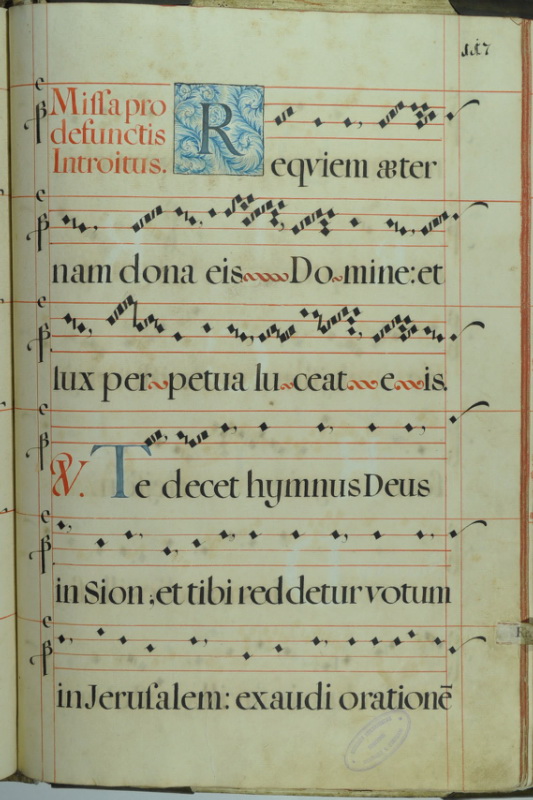 117
Miſſa pro
defunctis
Introitus.
Reqviem æter
nam dona eis Domine: et
lux perpetua luceat eis.
V. Te decet hymnus Deus
in Sion: et tibi reddetur votum
in Jeruſalem: exaudi orationē
R